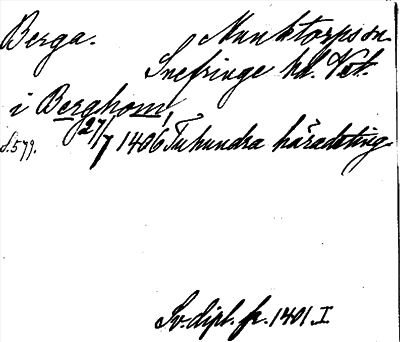 Berga. Munktorps sn.
Snefringe hd. Vstm.
i Berghom!
s. 579. 27/7 1406 Tuhundra häradsting.
Sv. dipl. fr. 1401. I